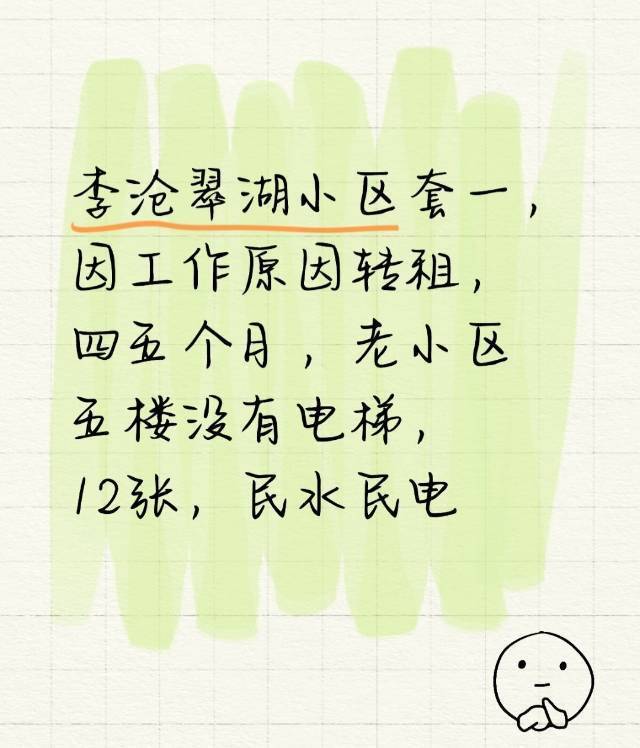 李沧翠湖小区套一,
因工作原因转租,
四五个月,老小区
五楼没有电梯,
12张,民水民电